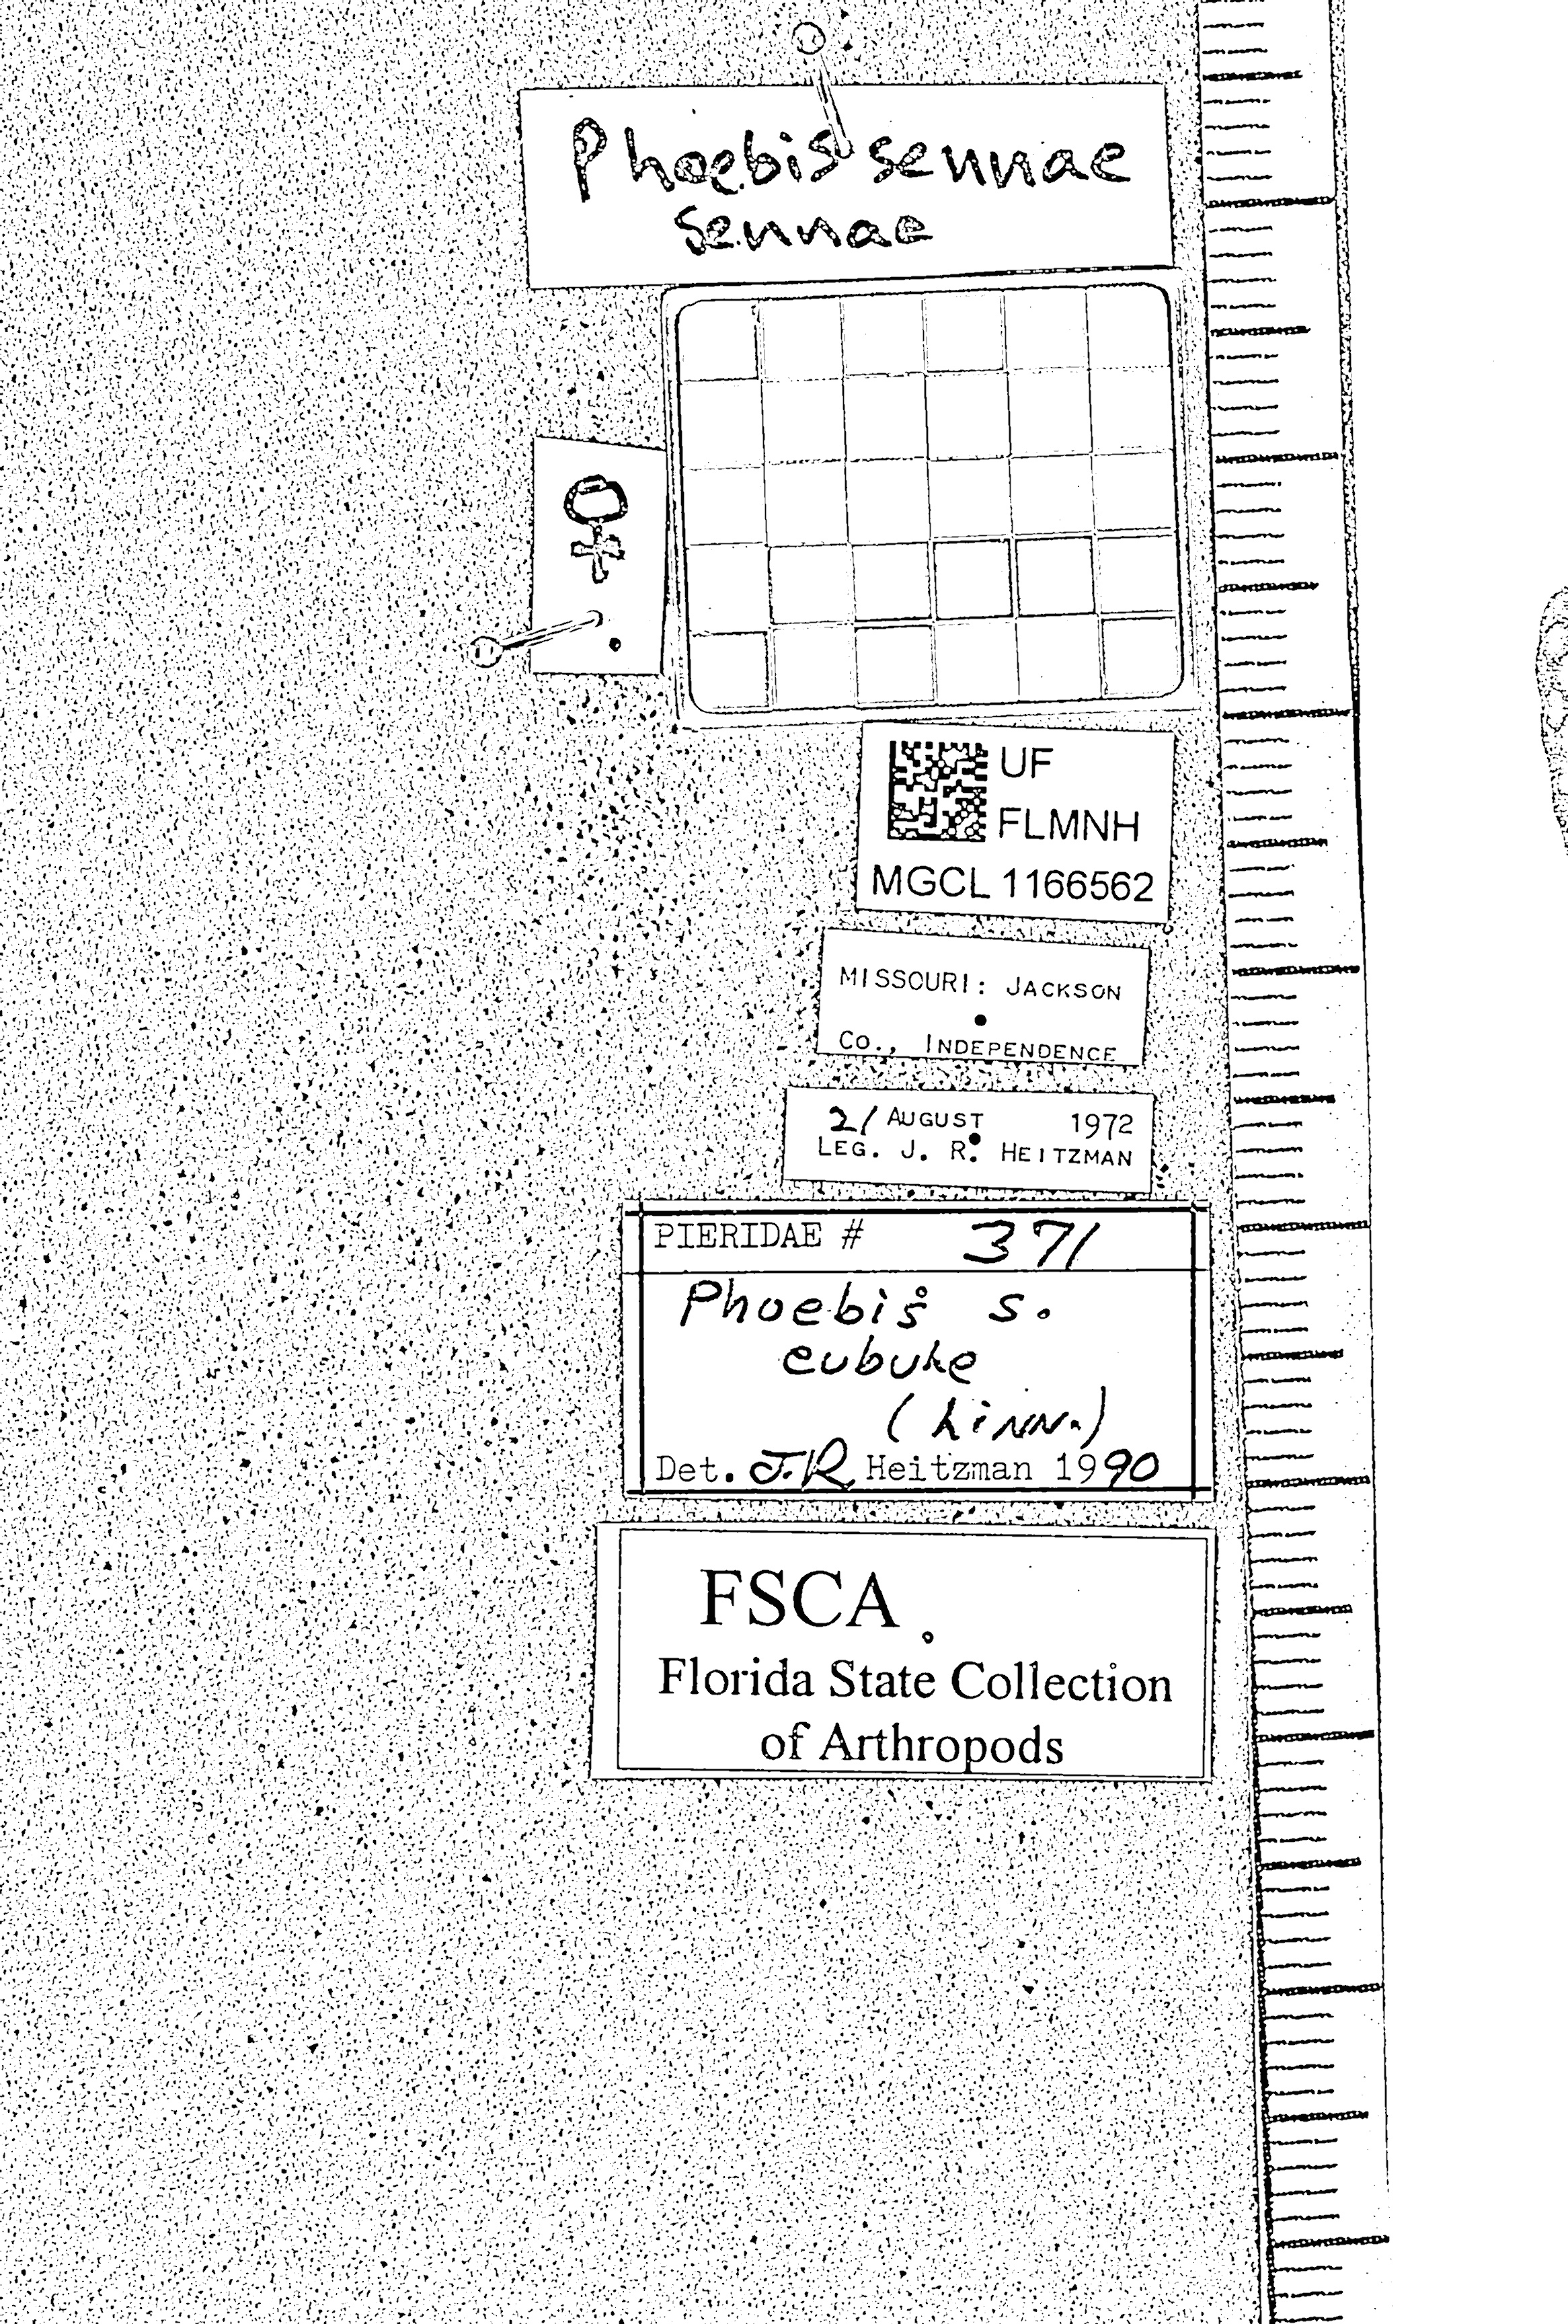 Phoebis sennae
sennae
♀
UF
FLMNH
MGCL 1166562
MISSOURI: JACKSON
Co., INDEPENDENCE
21 AUGUST 1972
LEG. J. R. HEITZMAN
PIERIDAE # 371
Phoebis s.
eubule
(Linn.)
Det. J.R. Heitzman 1990
FSCA
Florida State Collection
of Arthropods